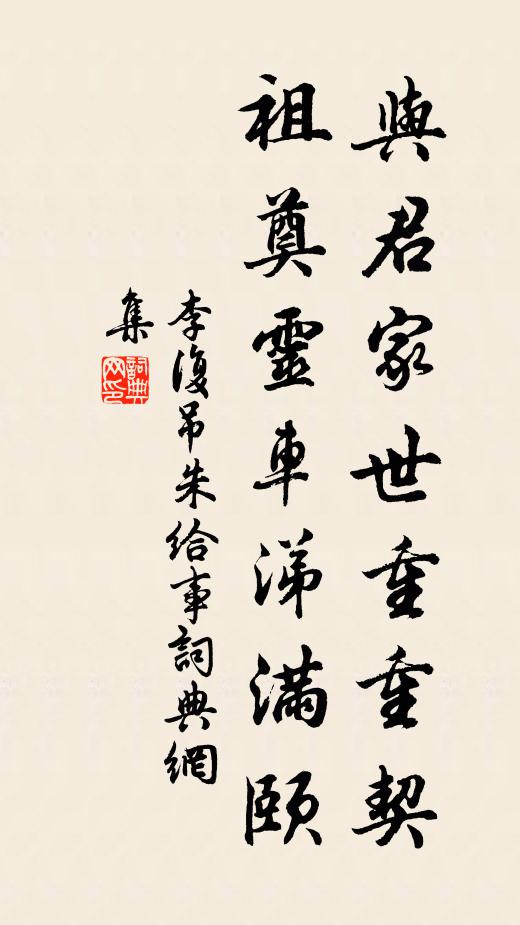 與君家世重重契
祖奠靈車涕滿頤
李復吊朱給事詞典網
集
詞典
网印